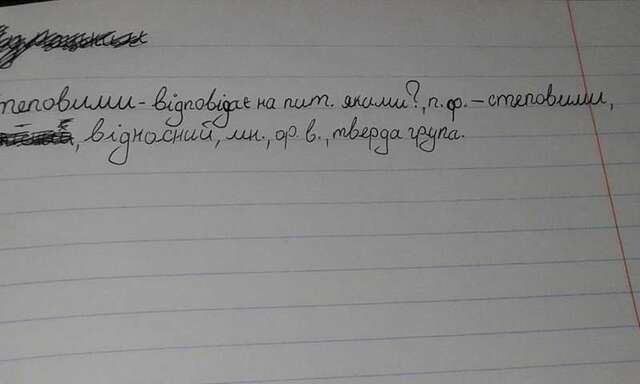 теповими - відповідає на пит. якими?, п.ф. - степовими,
, відносний, мн., ор.в., тверда група.